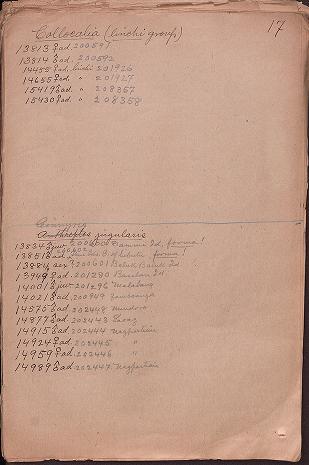 17
Collocalia (linchi group)
13813 ♀ad. 200591
13814 ♂ad. 200592
14455 ♀ad. linchi 201926
14655 ♀ad. " 201927
15419 ♂ad. " 208357
15430 ♀ad. " 208358
Anthreptes jugularis
13834 ♀juv 200600 Id. forma!
13851 ♂ad. 200602 forma!
13884 200601 Id.
13949 ♂ad. 201280 Basilan Id.
14001 ♂juv 201296 Malabang
14021 ♂ad. 200949 Zamboanga
14575 ♂ad. 202448 Mindoro
14877 ♂ad. 202443
14915 ♂ad. 202444 Nagpartian
14924 ♀ad. 202445 "
14959 ♀ad. 202446 "
14989 ♂ad. 202447 Nagpartian